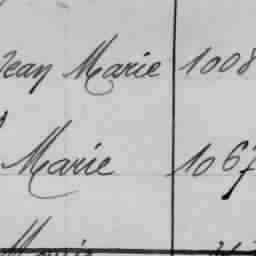 Jean Marie 1008
Marie 1067
Marie